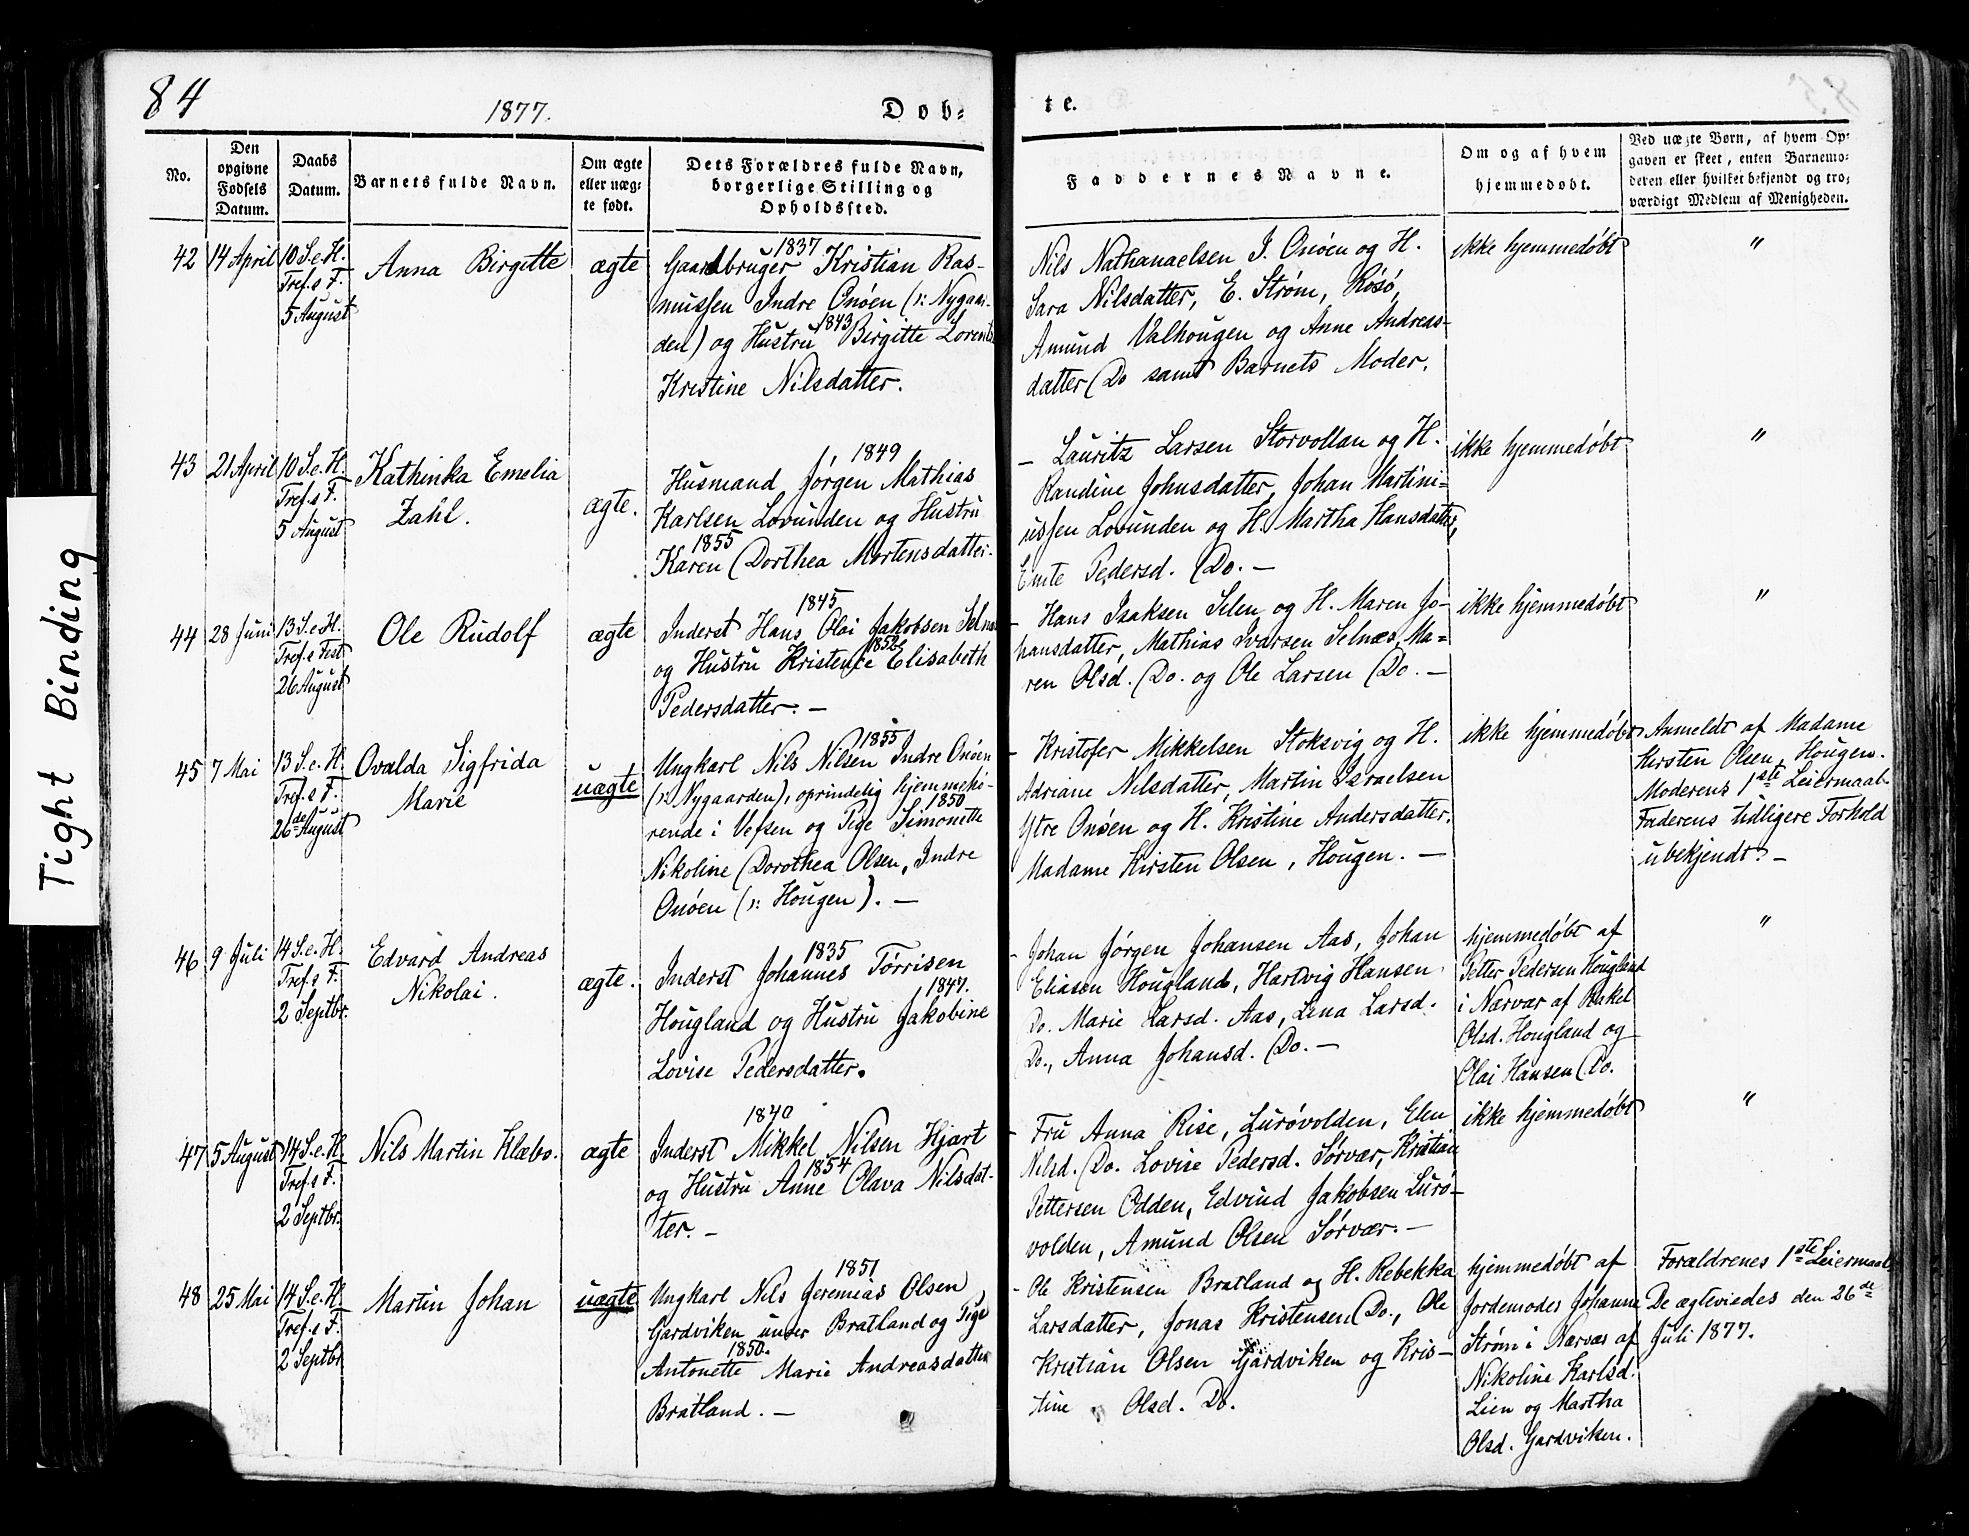 84
1877.
Døb-
te.
No.
Den
opgivne
Fødsels
Datum.
Daabs
Datum.
Barnets fulde Navn.
Om ægte
eller uæg-
te født.
Dets Forældres fulde Navn,
borgerlige Stilling og
Opholdssted.
Faddernes Navne.
Om og af hvem
hjemmedøbt.
Ved uægte Børn, af hvem Op-
gaven er skeet, enten Barnemo-
deren eller hvilket bekjendt og tro-
værdigt Medlem af Menigheden.
42
14 April
10 S. e. H.
Tref. s F.
5 August
Anna Birgitte
ægte
1837
Gaardbruger Kristian Ras-
mussen Indre Onøen (ɔ: Nygaar-
1843
den) og Hustru Birgitte Lorentse
Kristine Nilsdatter.
Nils Nathanaelsen I. Onøen og H.
Sara Nilsdatter, E. Strøm, Røsø,
Amund Valhougen og Anne Andreas-
datter Do samt Barnets Moder.
ikke hjemmedøbt
"
43
21 April
10 S. e. H.
Tref. s F.
5 August
Kathinka Emelia
Zahl.
ægte.
1849
Husmand Jørgen Mathias
Karlsen Lovunden og Hustru
1855
Karen Dorthea Mortensdatter.
- Lauritz Larsen Storvollan og H.
Randine Johnsdatter, Johan Martini-
ussen Lovunden og H. Martha Hansdatter,
Pedersd. Do. -
ikke hjemmedøbt
"
44
28 Juni
13 S. e. H.
Tref. s Fest
26 August
Ole Rudolf
ægte
1845
Inderst Hans Olai Jakobsen Selnæs
1852
og Hustru Kristence Elisabeth
Pedersdatter. -
- Hans Isaksen Selen og H. Maren Jo-
hansdatter, Mathias Ivarsen Selnæs, Ma-
ren Olsd. Do. og Ole Larsen Do. -
ikke hjemmedøbt
"
45
7 Mai
13 S. e. H.
Tref. s F.
26de August
Ovalda Sigfrida
Marie
uægte
1855
Ungkarl Nils Nilsen Indre Onøen
(ɔ: Nygaarden), oprindelig hjemmehø-
1850
rende i Vefsen og Pige Simonette
Nikoline Dorothea Olsen, Indre
Onøen (ɔ: Hougen). -
- Kristofer Mikkelsen Stoksvig og H.
Adriane Nilsdatter, Martin Israelsen
Ytre Onøen og H. Kristine Andersdatter,
Madame Kirsten Olsen, Hougen. -
ikke hjemmedøbt
Anmeldt af Madame
Kirsten Olsen, Hougen.
Moderens 1ste Leiermaal.
Faderens tidligere Forhold
ubekjendt. -
46
9 Juli
14 S. e. H.
Tref. s F.
2 Septbr.
Edvard Andreas
Nikolai.
ægte.
1835
Inderst Johannes Tørrisen
1847.
Hougland og Hustru Jakobine
Lovise Pedersdatter.
- Johan Jørgen Johansen Aas, Johan
Eliasen Hougland, Hartvig Hansen
Do. Marie Larsd. Aas, Lina Larsd.
Do., Anna Johansd. Do. -
hjemmedøbt af
Petter Pedersen Hougland
i Nærvær af Rakel
Olsd. Hougland og
Olai Hansen Do.
"
47
5 August
14 S. e. H.
Tref. s F.
2 Septbr.
Nils Martin Klæbo.
ægte
1840
Inderst Mikkel Nilsen Hjart
1854
og Hustru Anne Olava Nilsdat-
ter. -
- Fru Anna Rise, Lurøvolden, Elen
Nilsd. Do. Lovise Pedersd. Sørvær, Kristian
Pettersen Odden, Edvind Jakobsen Lurø-
volden, Amund Olsen Sørvær. -
ikke hjemmedøbt
"
48
25 Mai
14 S. e. H.
Tref. s F.
2 Septbr
Martin Johan
uægte
1851
Ungkarl Nils Jeremias Olsen
Gardviken under Bratland og Pige
1850.
Antonette Marie Andreasdatter
Bratland. -
- Ole Kristensen Bratland og H. Rebekka
Larsdatter, Jonas Kristensen Do., Ole
Kristian Olsen Gardviken og Kris-
tine Olsd. Do.
hjemmedøbt af
Jordemoder Johanne
Strøm i Nærvær af
Nikoline Karlsd.
Lien og Martha
Olsd. Gardviken.
Forældrenes 1ste Leiermaal
De ægteviedes den 26de
Juli 1877.
Tight Binding